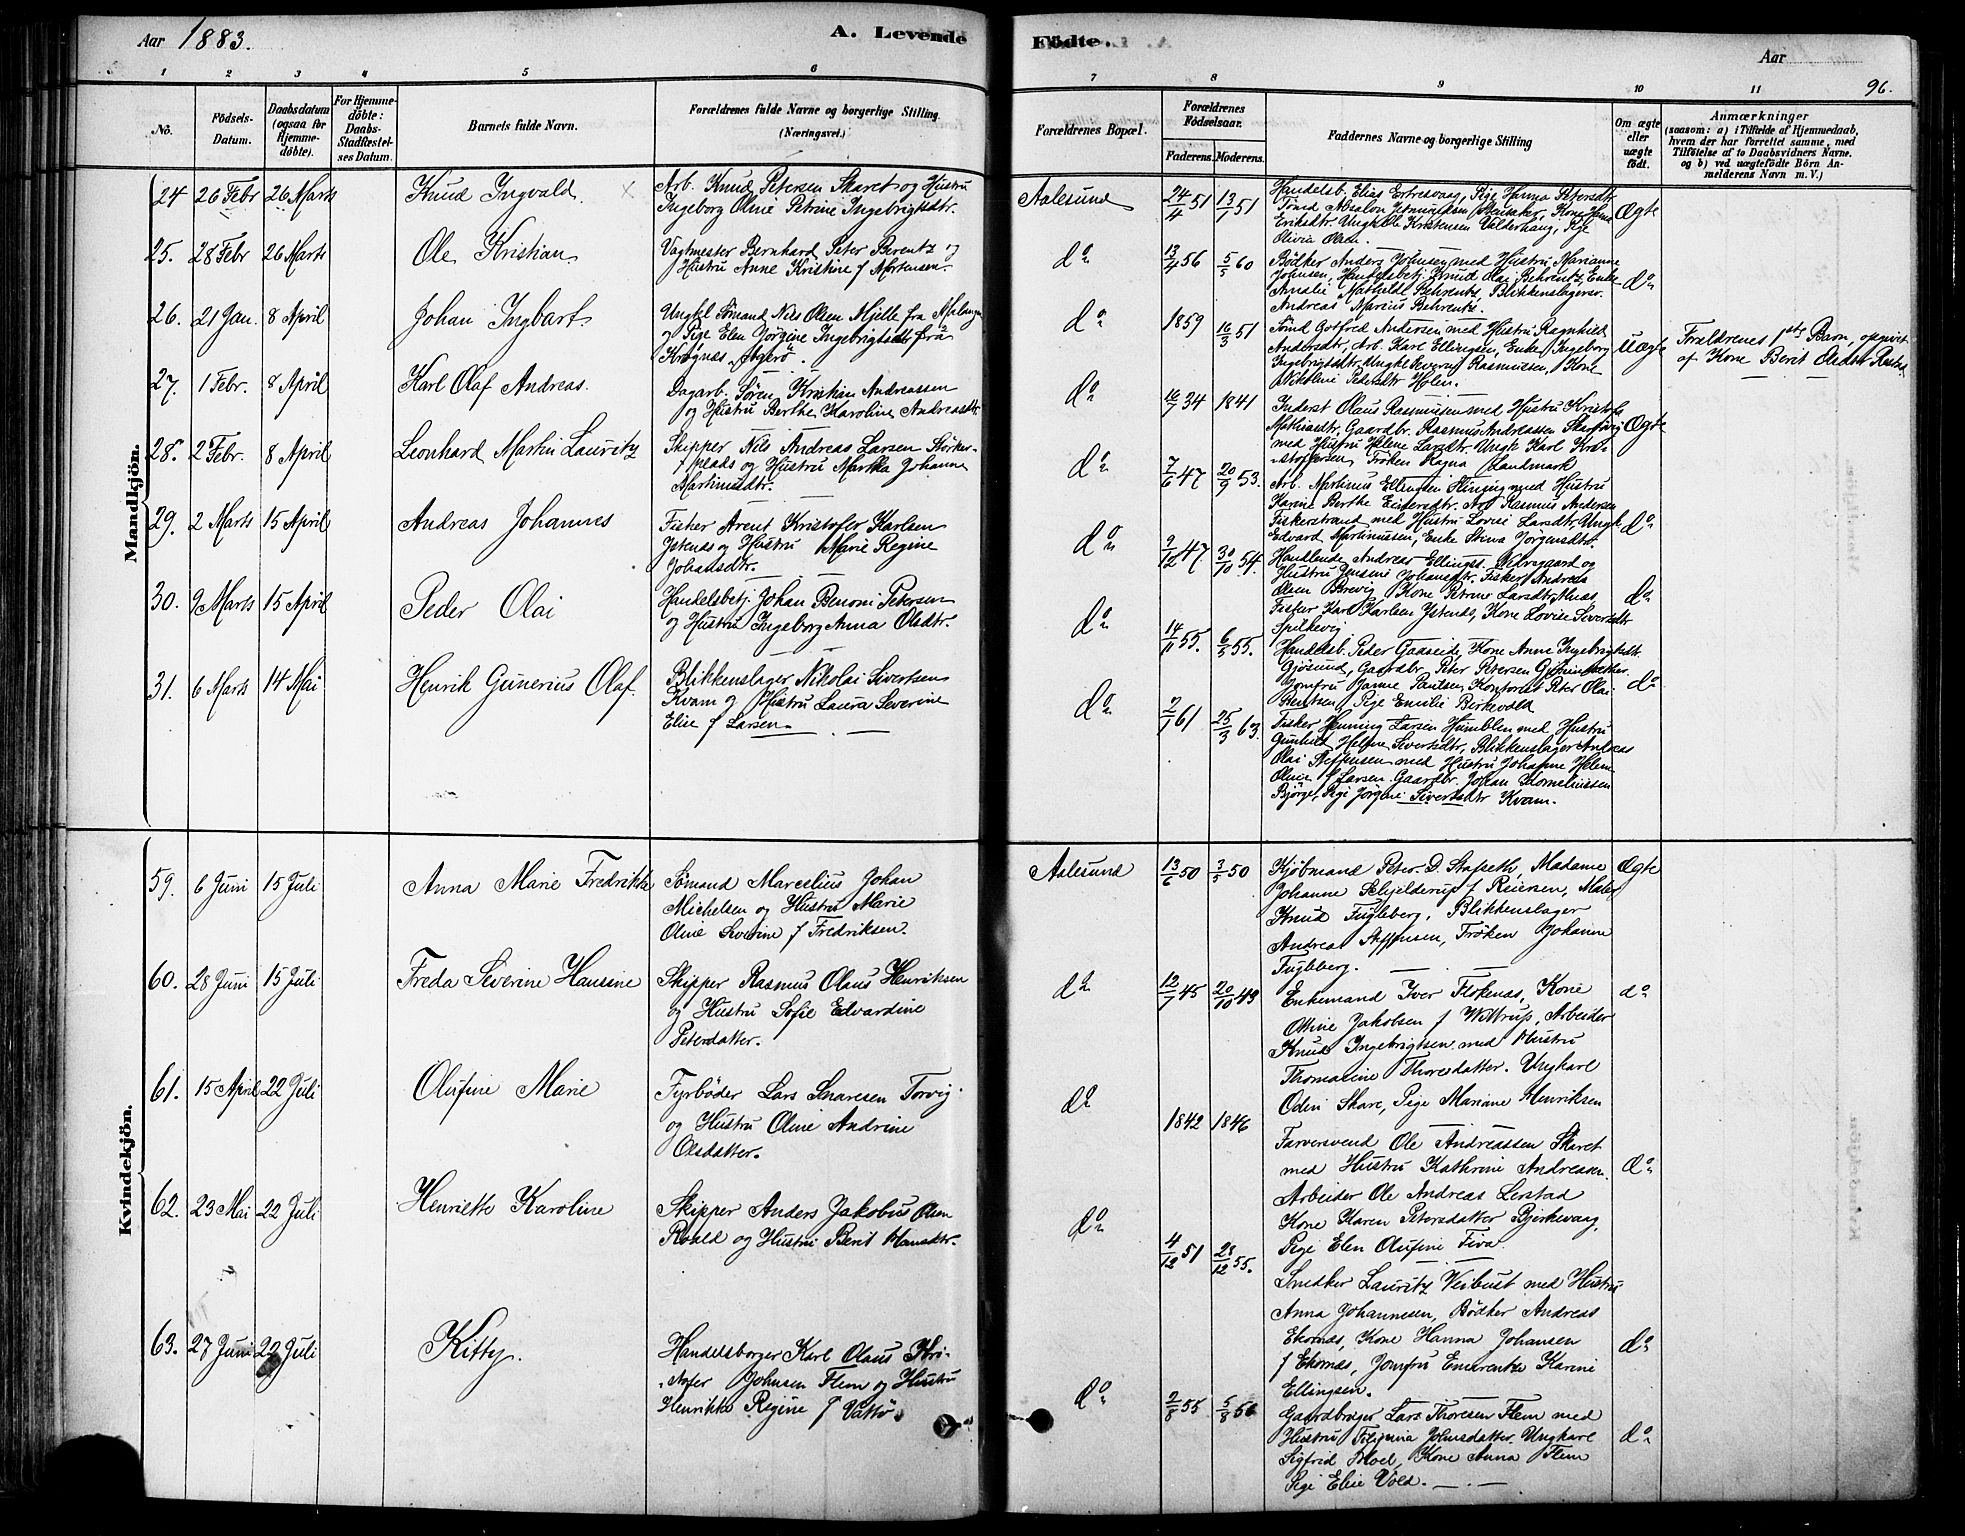 Aar 1883.
A. Levende
Födte.
Aar
96.
1 2 3 4 5 6 7 8 9 10 11
No.
Födsels-
Datum.
Daabsdatum
(ogsaa for
Hjemme-
döbte).
For Hjemme-
döbte:
Daabs-
Stadfæstel-
ses Datum.
Barnets fulde Navn.
Forældrenes fulde Navne og borgerlige Stilling.
(Næringsvei.)
Forældrenes Bopæl.
Forældrenes
Födselsaar.
Faderens. Moderens.
Faddernes Navne og borgerlige Stilling
Om ægte
eller
uægte
födt.
Anmærkninger
(saasom: a) i Tilfælde af Hjemmedaab,
hvem der har forrettet samme, med
Tilföielse af to Daabsvidners Navne.
og b) ved uægtefödte Börn An-
melderens Navn m. V.)
Mandkjön.
24 26 Febr 26 Marts Knud Ingvald.
Arb. Knud Petersen Skaret og Hustru
Ingeborg Oline Petrine Ingebrigtsdtr.
Aalesund 24/4 51 13/1 51
Handelsb. Elias Ertresvaag, Pige Hanna Petersdtr
Eriksdtr. Ungk Ole Kristensen Valderhaug, Pige
Olivia Olsen.
Ægte
25. 28 Febr 26 Marts Ole Kristian
Vagtmester Bernhard Peter Berentz og
Hustru Anne Kristine f Mortensen.
do 13/4 56 5/5 60
Bödker Anders Johnsen med Hustru Marianne
Johnsen, Handelsbetj. Knud Olai Behrentz, Enke
Amalie Mathilde Behrentz, Blikkenslagersv.
Andreas Marius Behrentz.
do
26. 21 Jan. 8 April Johan Ingbart
Ungkl Sömand Nils Olsen Mjelle fra
og Pige Elen Jörgine Ingebrigtsdtr fra
do 1859 16/3 51
Sömd Gotfred Andersen med Hustru Ragnhild
Andersdtr, Arb. Karl Ellingsen, Enke Ingeborg
Ingebrigtsdtr, Ungkl Severin Rasmussen, Kone
Nikoline Petersdtr Holen.
uægte
Forældrenes 1ste Barn, opgivet
af Kone Berit Olsdtr
27. 1 Febr. 8 April Karl Olaf Andreas.
Dagarb. Sören Kristian Andreassen
og Hustru Berthe Karoline Andreasdtr
do 16/7 34 1841
Inderst Olaus Rasmussen med Hustru
Mathiasdtr, Gaardbr. Rasmus Andreassen
med Hustru Helene Larsdtr. Ungk Karl Kri-
stoffersen, Fröken Ragna Landmark
Ægte
28. 2 Febr. 8 April Leonhard Martin Lauritz
Skipper Nils Andreas Larsen Storker-
plads og Hustru Martha Johanne
Martinusdtr.
do 7/6 47 20/9 53.
Arb. Martinus Ellingsen med Hustru
Karine Berthe Einersdtr. Arb Rasmus Andersen
Fiskerstrand med Hustru Lovise Larsdtr, Ungk
Edvard Martinussen, Enke Stina Jörgensdtr.
do
29. 2 Marts 15 April Andreas Johannes
Fisker Arent Kristofer Karlsen
Ystenes og Hustru Marie Regine
Johansdtr.
do 2/12 47. 30/10 54.
Handlende Andreas Ellingst. og
Hustru Jensine Johansdtr. Fisker Andreas
Olsen Brevig, Kone Petrine Larsdtr
Fisker Karl Karlsen Ystenes, Kone Lovise Sivertsdtr
Spilkevig
do
30. 9 Marts 15 April Peder Olai
Handelsbetj. Johan Benoni Petersen
og Hustru Ingeborg Anna Olsdtr.
do 14/11 55. 6/5 55.
Handelsb. Peder Gaaseide, Kone Anne Ingebrigtsdtr
Gjösund, Gaardbr. Peter Petersen
Jomfru Janne Paulsen, Kontorist Peter Olai
Bentsen, Pige Emilie Birkevold
do
31. 6 Marts 14 Mai Henrik Gunerius Olaf.
Blikkenslager Nikolai Sivertsen
Kvam og Hustru Laura Severine
Elise f Larsen.
do 2/1 61 25/3 63.
Fisker Henning Larsen Humblen med Hustru
Gunhild Helene Sivertsdtr, Blikkenslager Andreas
Olai Steffensen med Hustru Johanne Helene
Oline f Larsen. Gaardbr. Johan Kornelinssen
Bjørge, Pige Jörgine Sivertsdtr Kvam.
Kvindekjön.
59. 6 Juni 15 Juli Anna Marie Fredrikke
Sömand Marcelius Johan
Michelsen og Hustru Marie
Oline Severine f Fredriksen.
Aalesund 13/6 50 3/5 50
Kjöbmand Peter D. Stafseth, Madame
Johanne Schjelderup f Reiersen, Maler
Knud Fugleberg, Blikkenslager
Andreas Steffensen, Fröken Johanne
Fugleberg.
Ægte
60. 28 Juni 15 Juli Freda Severine Hansine
Skipper Rasmus Olaus Henriksen
og Hustru Sofie Edvardine
Petersdatter.
do 12/7 45 20/10 43
Enkemand Iver Flokenæs, Kone
Ottine Jakobsen f Wittrup, Arbeider
Knud Ingebrigtsen med Hustru
Thomasine Thoresdatter. Ungkarl
Odin Skare, Pige Mariane Henriksen
do
61. 15 April 22 Juli Olufine Marie
Fyrböder Lars Knarsen Torvig
og Hustru Oline Andrine
Olsdatter.
do 1842 1846
Farversvend Ole Andreassen Skaret
med Hustru Kathrine Andreasen.
Arbeider Ole Andreas Lerstad
Kone Karen Petersdatter Bjerkevaag,
Pige Elen Olufine Fiva.
do
62. 23 Mai 22 Juli Henriette Karoline
Skipper Anders Jakobus Olsen
Roald og Hustru Berit Hansdtr.
do 4/12 51 23/12 55.
Snedker Lauritz Veibust med Hustru
Anna Johannesen, Bödker Andreas
Ekornæs, Kone Hanna Johansen
f Ekornæs, Jomfru Emerentze Karine
Ellingsen.
do
63. 27 Juni 22 Juli Kitty.
Handelsborger Karl Olaus Kri-
stofer Johnsen Flem og Hustru
Henrikke Regine f Vattö.
do 2/8 55 5/8 56
Gaardbruger Lars Thoresen Flem med
Hustru Johnsdatter. Ungkarl
Sigfrid Moel, Kone Anna Flem
Pige Elise Vold.
do